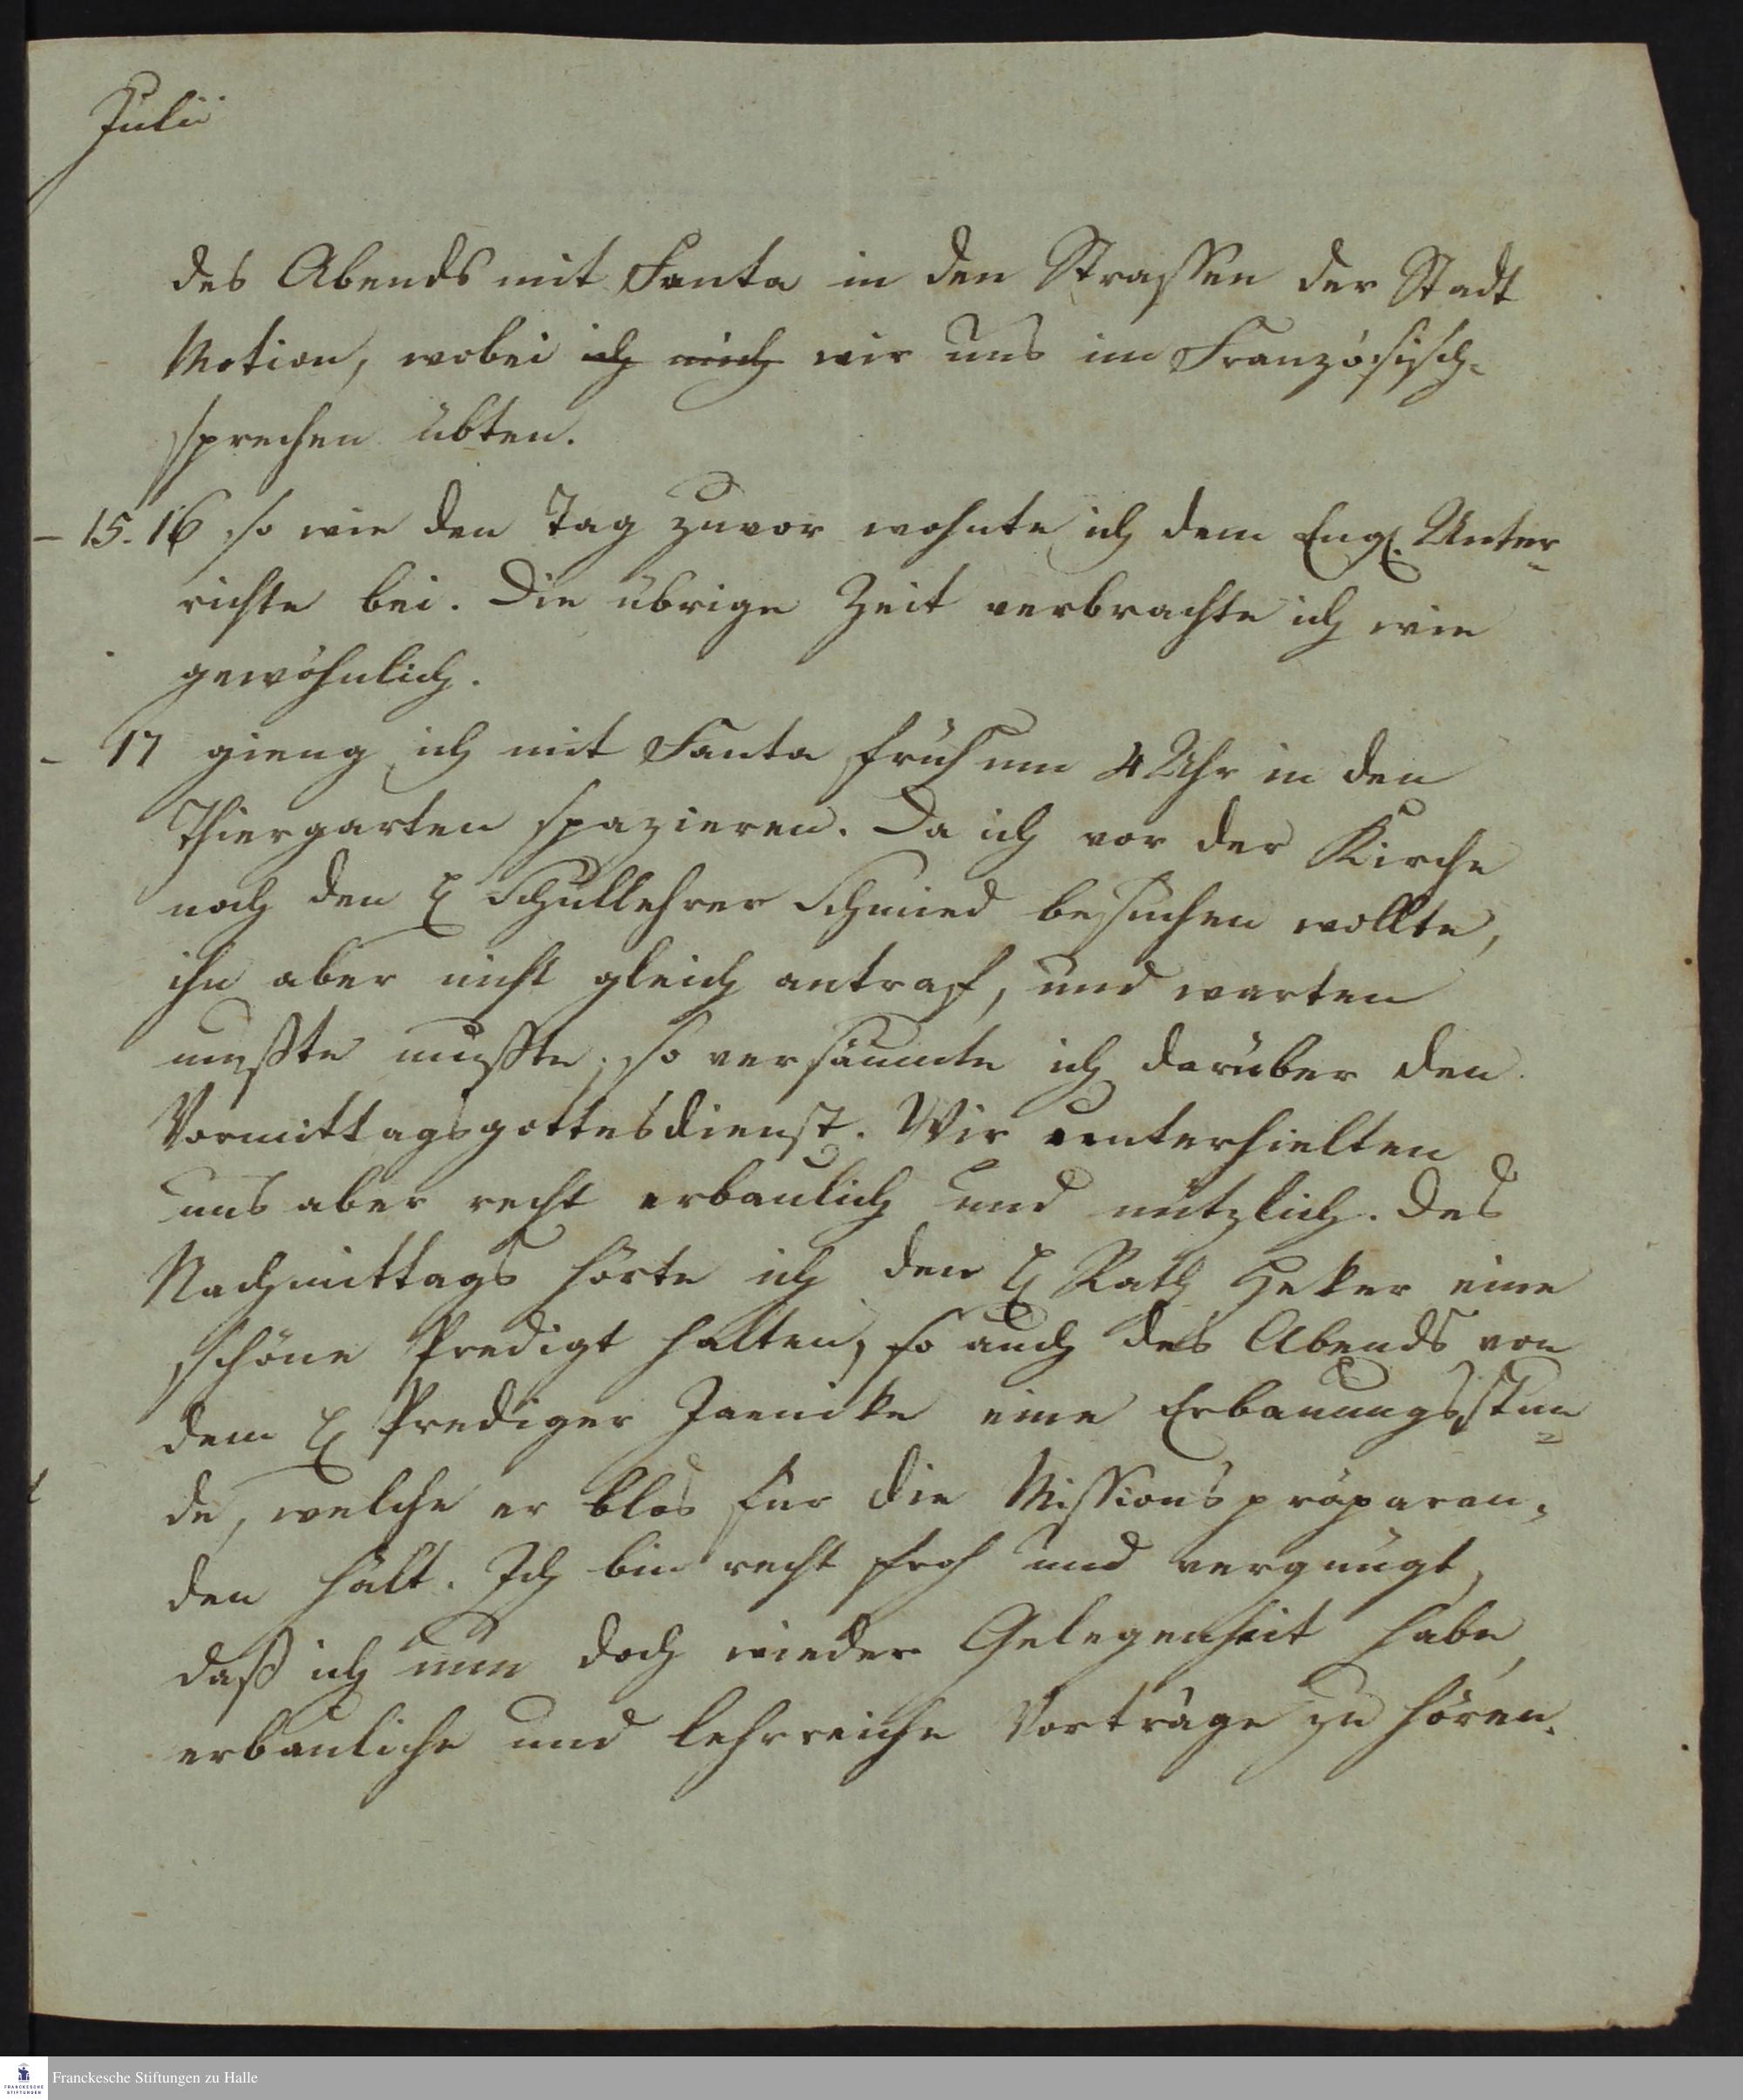 Julii
des Abends mit Fanta in den Strassen der Stadt
Motion, wobei ich mich wir uns im Französisch-
sprechen übten.
– 15. 16 so wie den Tag zuvor wohnte ich dem Engl. Unter-
richte bei. Die übrige Zeit verbrachte ich wie
gewöhnlich.
– 17 gieng ich mit Fanta früh um 4 Uhr in den
Thiergarten spazieren. Da ich vor der Kirche
noch den H Schullehrer Schmied besuchen wollte,
ihn aber nicht gleich antraf, und warten
mußte mußte; so versäumte ich darüber den
Vormittagsgottesdienst. Wir unterhielten
uns aber recht erbaulich und nützlich. Des
Nachmittags hörte ich den H Rath Heker eine
schöne Predigt halten, so auch des Abends von
dem H Prediger Jaenicke eine Erbauungsstun-
de, welche er blos für die Missionspräparan-
den hält. Ich bin recht froh und vergnügt,
daß ich nun doch wieder Gelegenheit habe,
erbauliche und lehrreiche Vorträge zu hören.
FRANCKESCHE STIFTUNGEN
Franckesche Stiftungen zu Halle